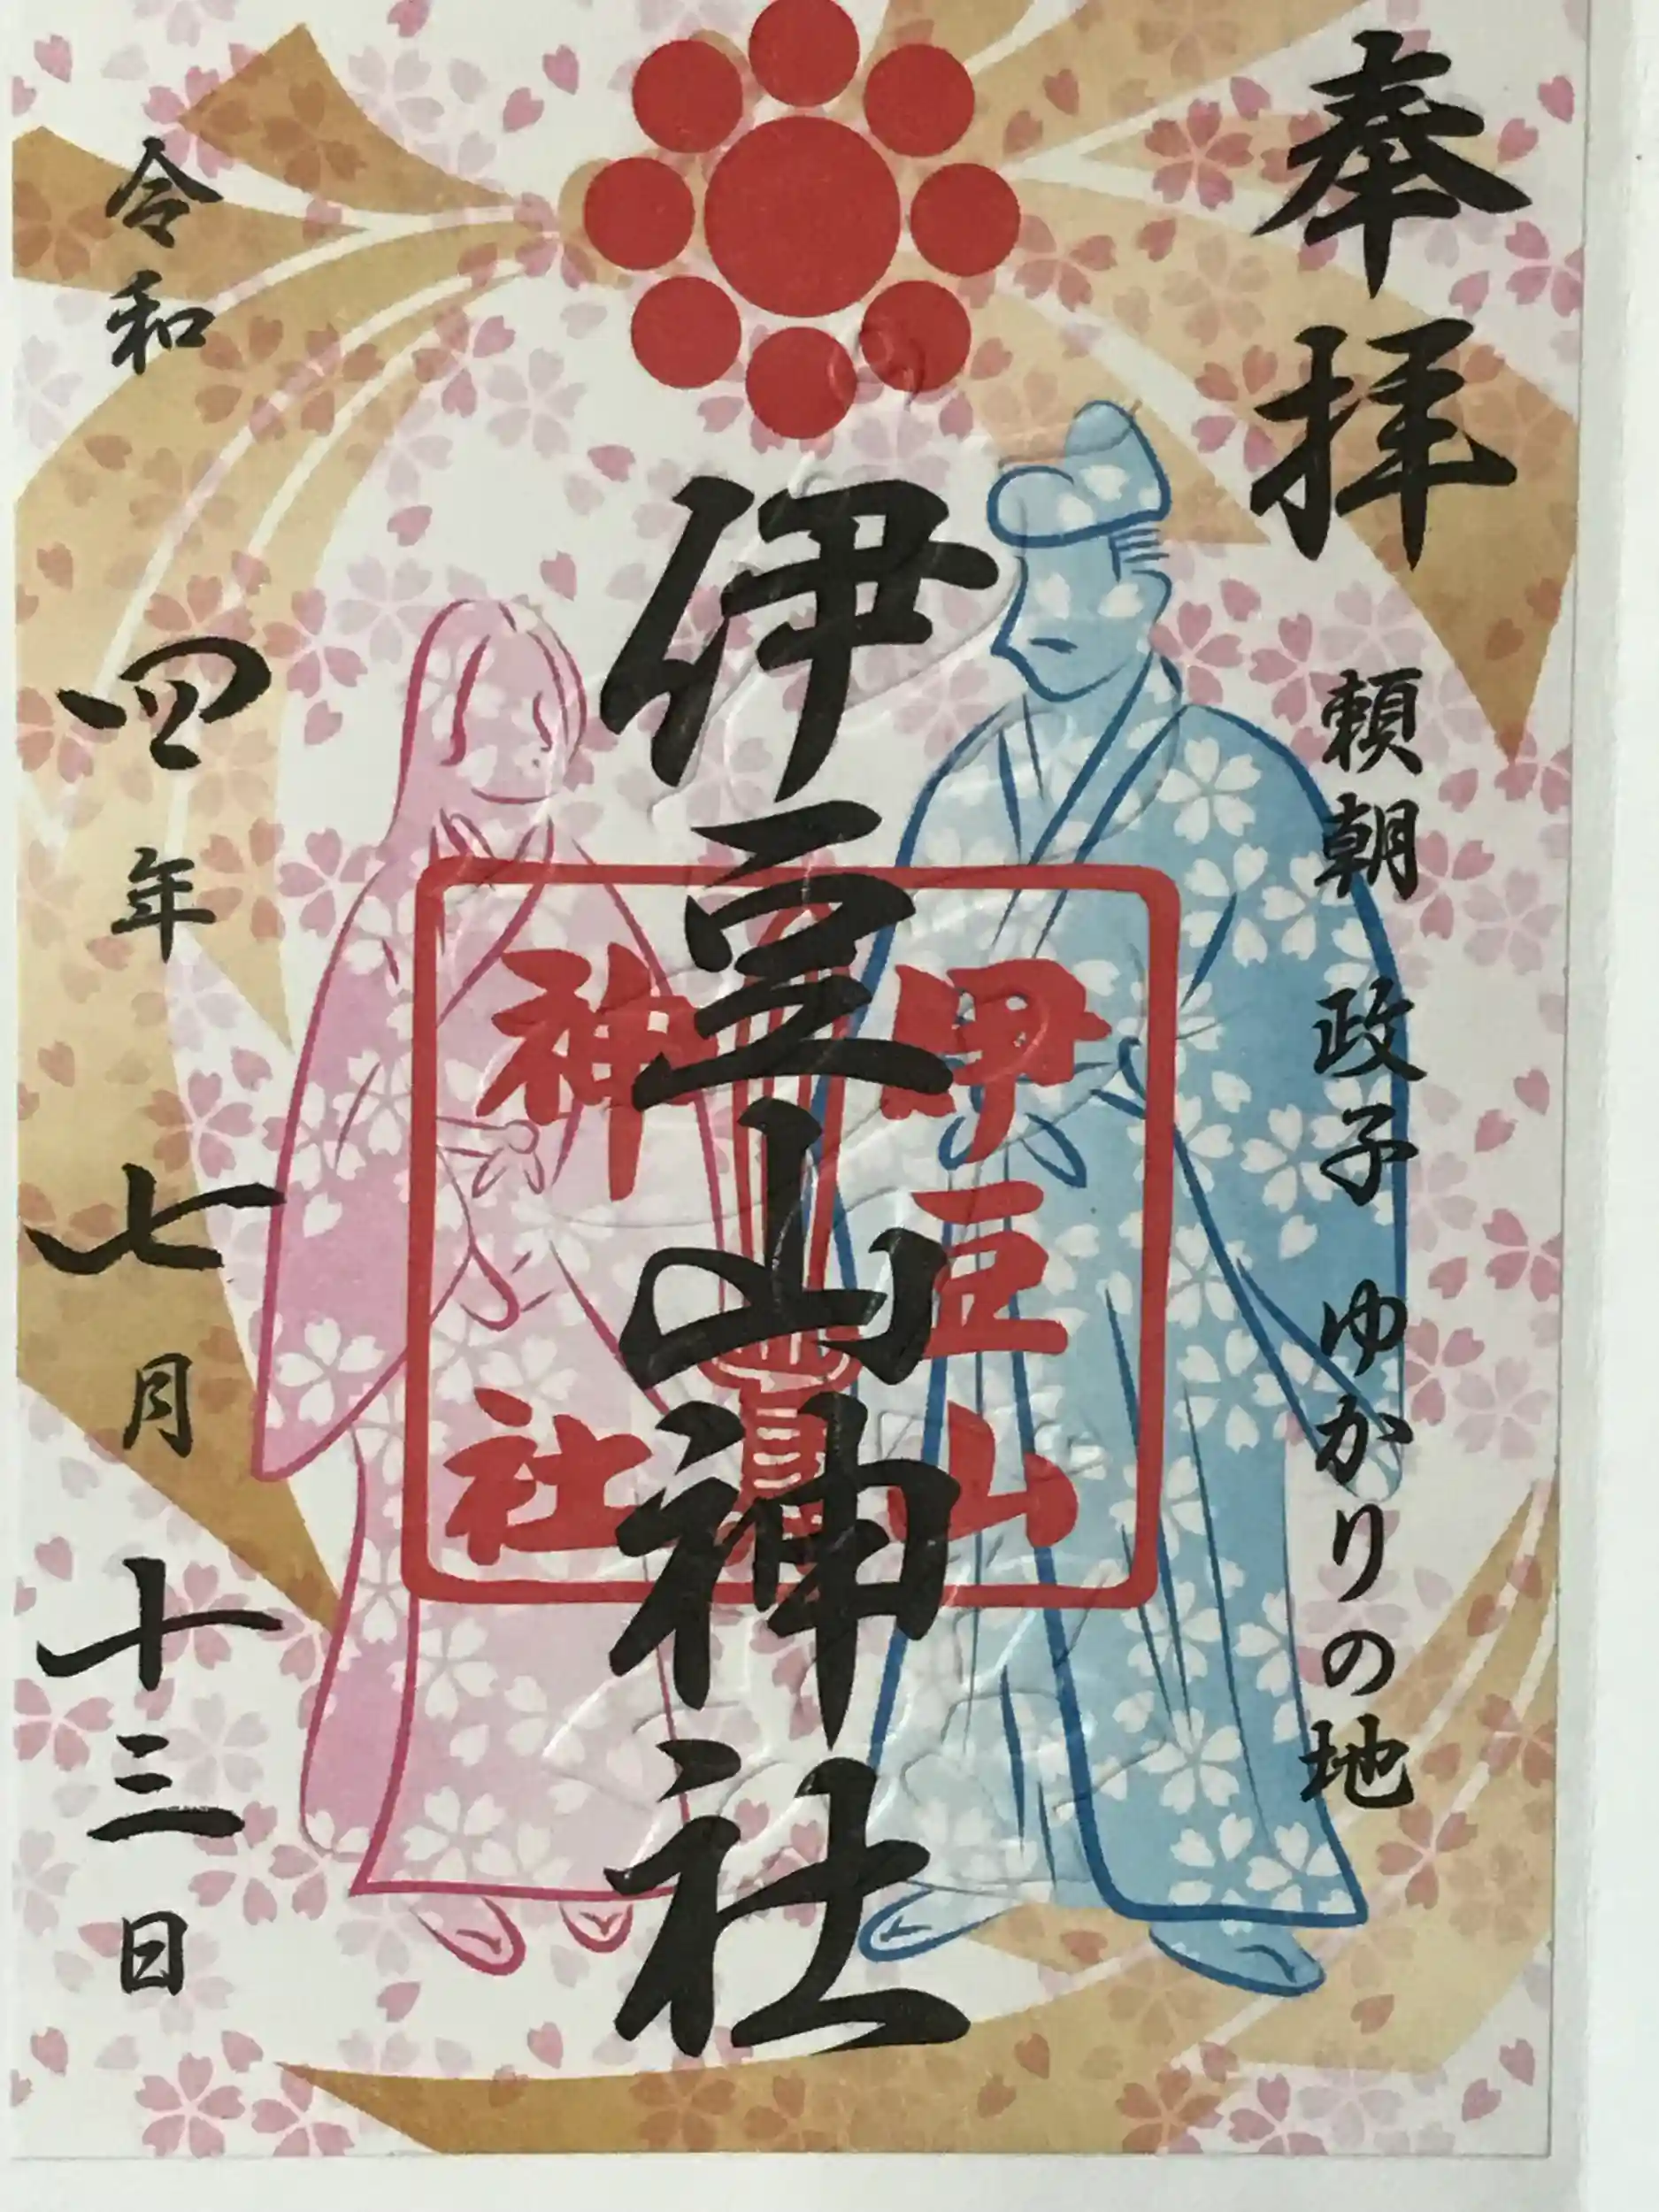 奉拝
頼朝 政子 ゆかりの地
伊豆山神社
伊豆山
神社
令和四年七月十三日